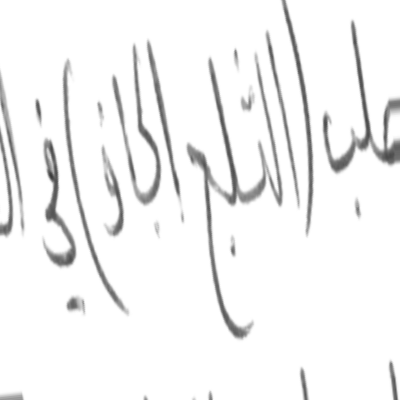 صلب (الثلج الجاف) في ال